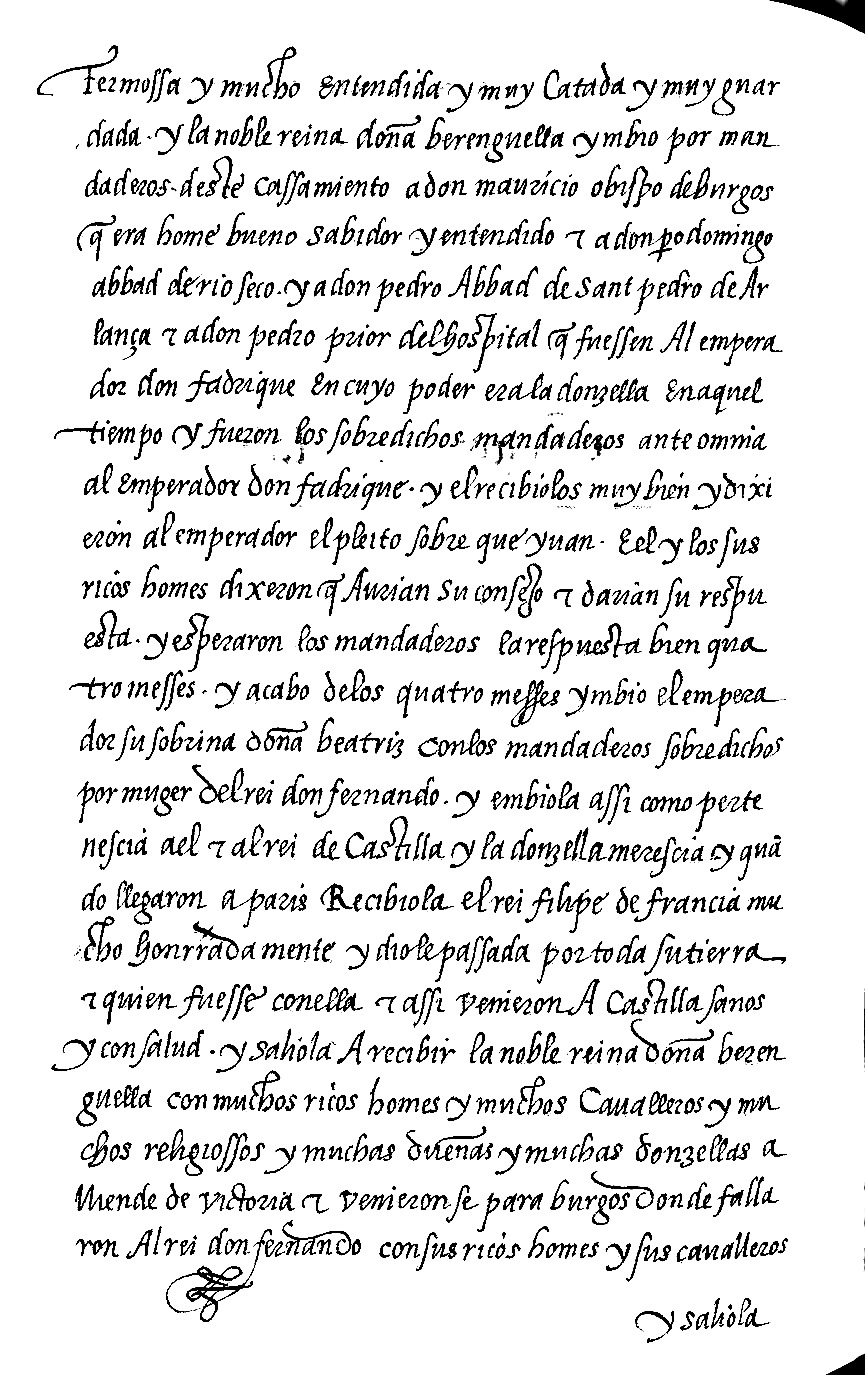 fermossa y mucho entendida y muy Catada y muy guar
dada. y la noble reina doña berenguella ymbio por man
daderos deste cassamiento a don mauricio obispo de burgos
q̃ era home bueno sabidor y entendido ⁊ a don po domingo
abbad de rio seco. y a don pedro Abbad de Sant pedro de Ar
lança ⁊ a don pedro prior del hospital q̃ fuessen Al empera
dor don fadrique En cuyo poder era la donzella En aquel
tiempo y fueron los sobredichos mandaderos ante omnia
al Emperador don fadrique. y el recibiolos muy bien y dixi
eron al emperador el pleito sobre que yuan. E el y los sus
ricos homes dixeron q̃ Aurian su consejo ⁊ darian su respu
esta. y esperaron los mandaderos la respuesta bien qua
tro messes. y acabo de los quatro messes ymbio el empera
dor su sobrina doña beatriz con los mandaderos sobredichos
por muger del rei don fernando. y embiola assi como perte
nescia a el ⁊ al rei de Castilla y la donzella merescia y quã
do llegaron a paris Recibiola el rei filipe de francia mu
cho honrrada mente y diole passada por toda su tierra
⁊ quien fuesse con ella ⁊ assi venieron A Castilla sanos
y con salud. y saliola A recibir la noble reina doña beren
guella con muchos ricos homes y muchos Caualleros y mu
chos religiossos y muchas dueñas y muchas donzellas a
Mende de victoria ⁊ venieron se para burgos Donde falla
ron Al rei don fernando con sus ricos homes y sus caualleros
y saliola